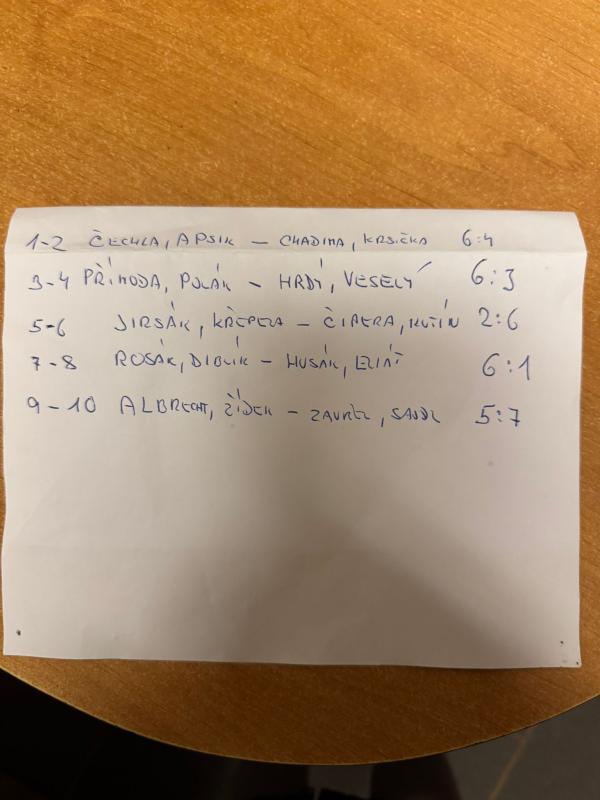 1-2 ČECHLA, APSIK – CHADIMA, KRSIČKA 6:4
3-4 PŘÍHODA, POLÁK – HRDÝ, VESELÝ 6:3
5-6 JIRSÁK, KŘEPELA – ČIPERA, KUTÍN 2:6
7-8 ROSÁK, DIBLÍK – HUSÁK, ELIÁŠ 6:1
9-10 ALBRECHT, ŽÍDEK – ZAVŘEL, SAJDL 5:7